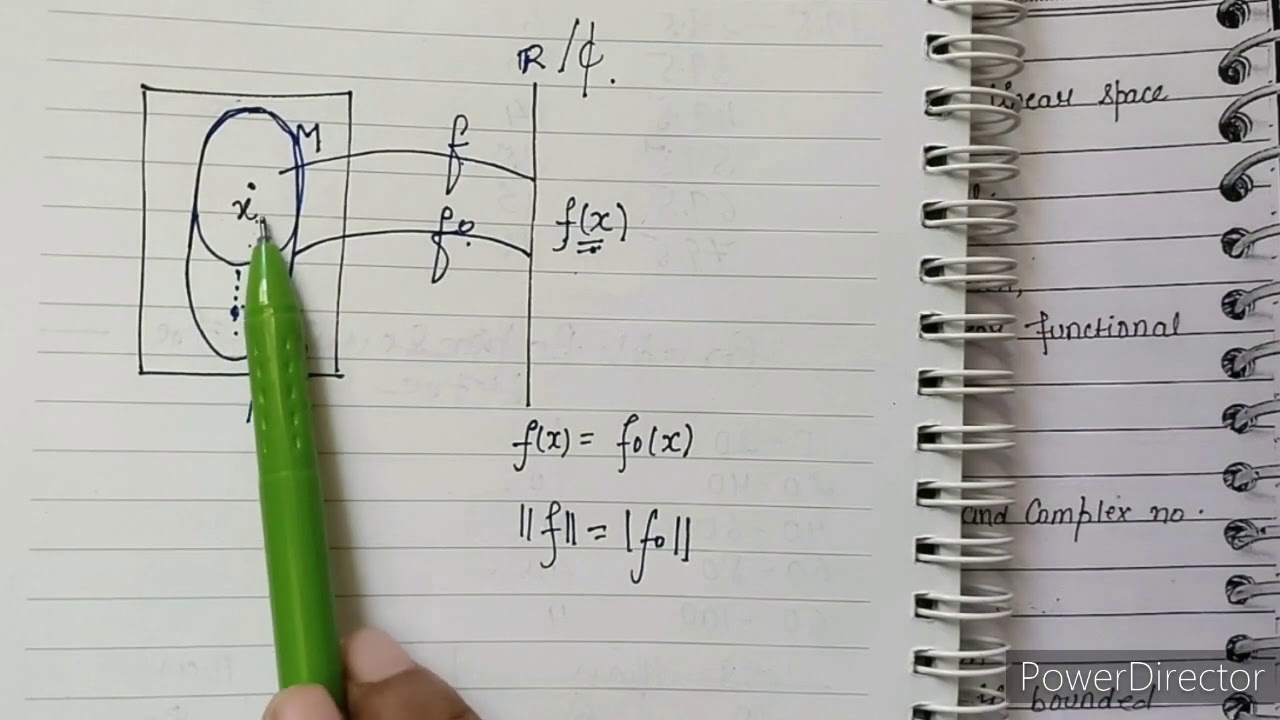 R/₵.
M
f
x
f₀
f(x)
f(x) = f₀(x)
||f|| = |f₀||
linear space
functional
and Complex no.
is bounded
PowerDirector